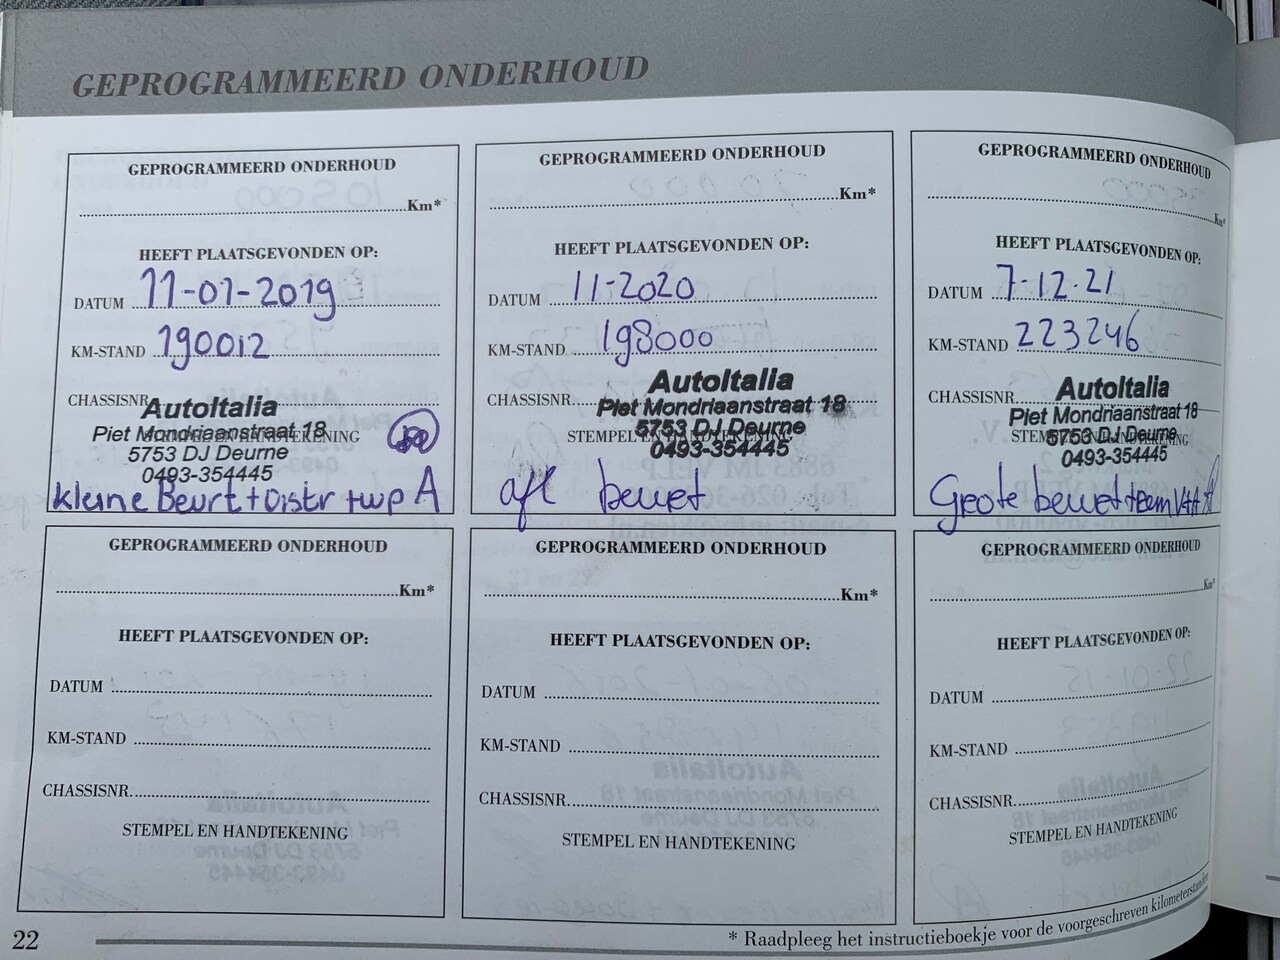 GEPROGRAMMEERD ONDERHOUD
GEPROGRAMMEERD ONDERHOUD
Km*
HEEFT PLAATSGEVONDEN OP:
DATUM 11-01-2019
KM-STAND 190012
CHASSISNR.
AutoItalia
Piet Mondriaanstraat 18
STEMPEL EN HANDTEKENING
5753 DJ Deurne
0493-354445
kleine Beurt + Distr + wp A
GEPROGRAMMEERD ONDERHOUD
Km*
HEEFT PLAATSGEVONDEN OP:
DATUM 11-2020
KM-STAND 198000
CHASSISNR.
AutoItalia
Piet Mondriaanstraat 18
5753 DJ Deurne
STEMPEL EN HANDTEKENING
0493-354445
afl beurt
GEPROGRAMMEERD ONDERHOUD
Km*
HEEFT PLAATSGEVONDEN OP:
DATUM 7-12-21
KM-STAND 223246
CHASSISNR.
AutoItalia
Piet Mondriaanstraat 18
5753 DJ Deurne
STEMPEL EN HANDTEKENING
0493-354445
Grote beurt + rem V+A
GEPROGRAMMEERD ONDERHOUD
Km*
HEEFT PLAATSGEVONDEN OP:
DATUM
KM-STAND
CHASSISNR.
STEMPEL EN HANDTEKENING
GEPROGRAMMEERD ONDERHOUD
Km*
HEEFT PLAATSGEVONDEN OP:
DATUM
KM-STAND
CHASSISNR.
STEMPEL EN HANDTEKENING
GEPROGRAMMEERD ONDERHOUD
Km*
HEEFT PLAATSGEVONDEN OP:
DATUM
KM-STAND
CHASSISNR.
STEMPEL EN HANDTEKENING
22
* Raadpleeg het instructieboekje voor de voorgeschreven kilometerstanden